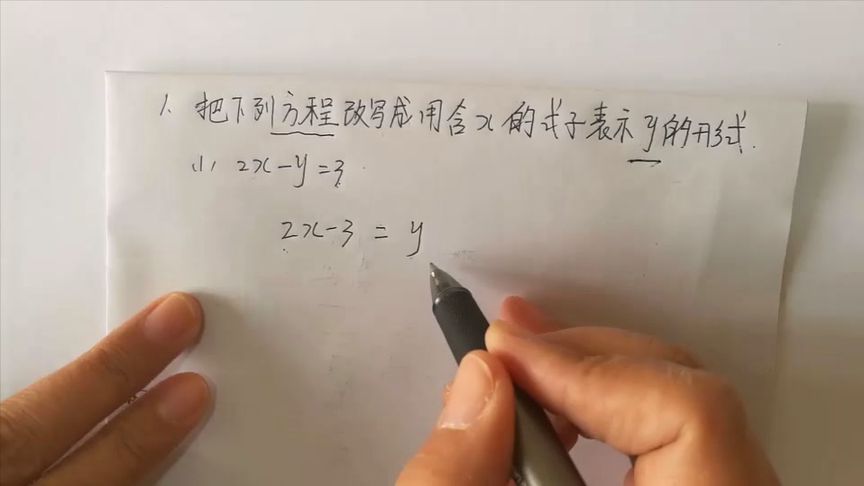 1、把下列方程改写成用含x的式子表示y的形式.
(1) 2x-y=3
2x-3 = y